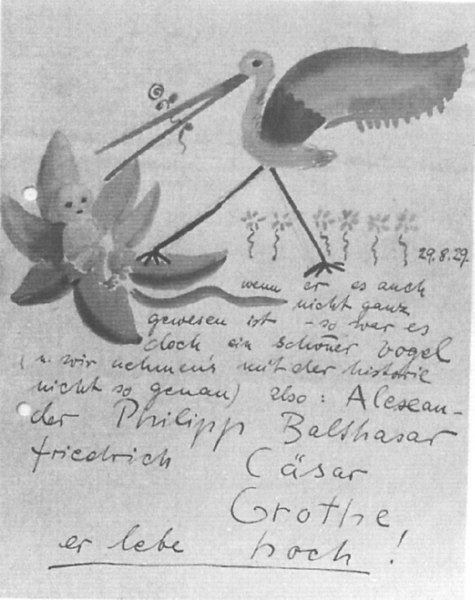 29.8.29.
wenn er es auch
nicht ganz
gewesen ist - so war es
doch ein schöner vogel
(u. wir nehmen's mit der historie
nicht so genau) also: Alexan-
der Philipp Balthasar
friedrich Cäsar
Grothe
er lebe hoch!